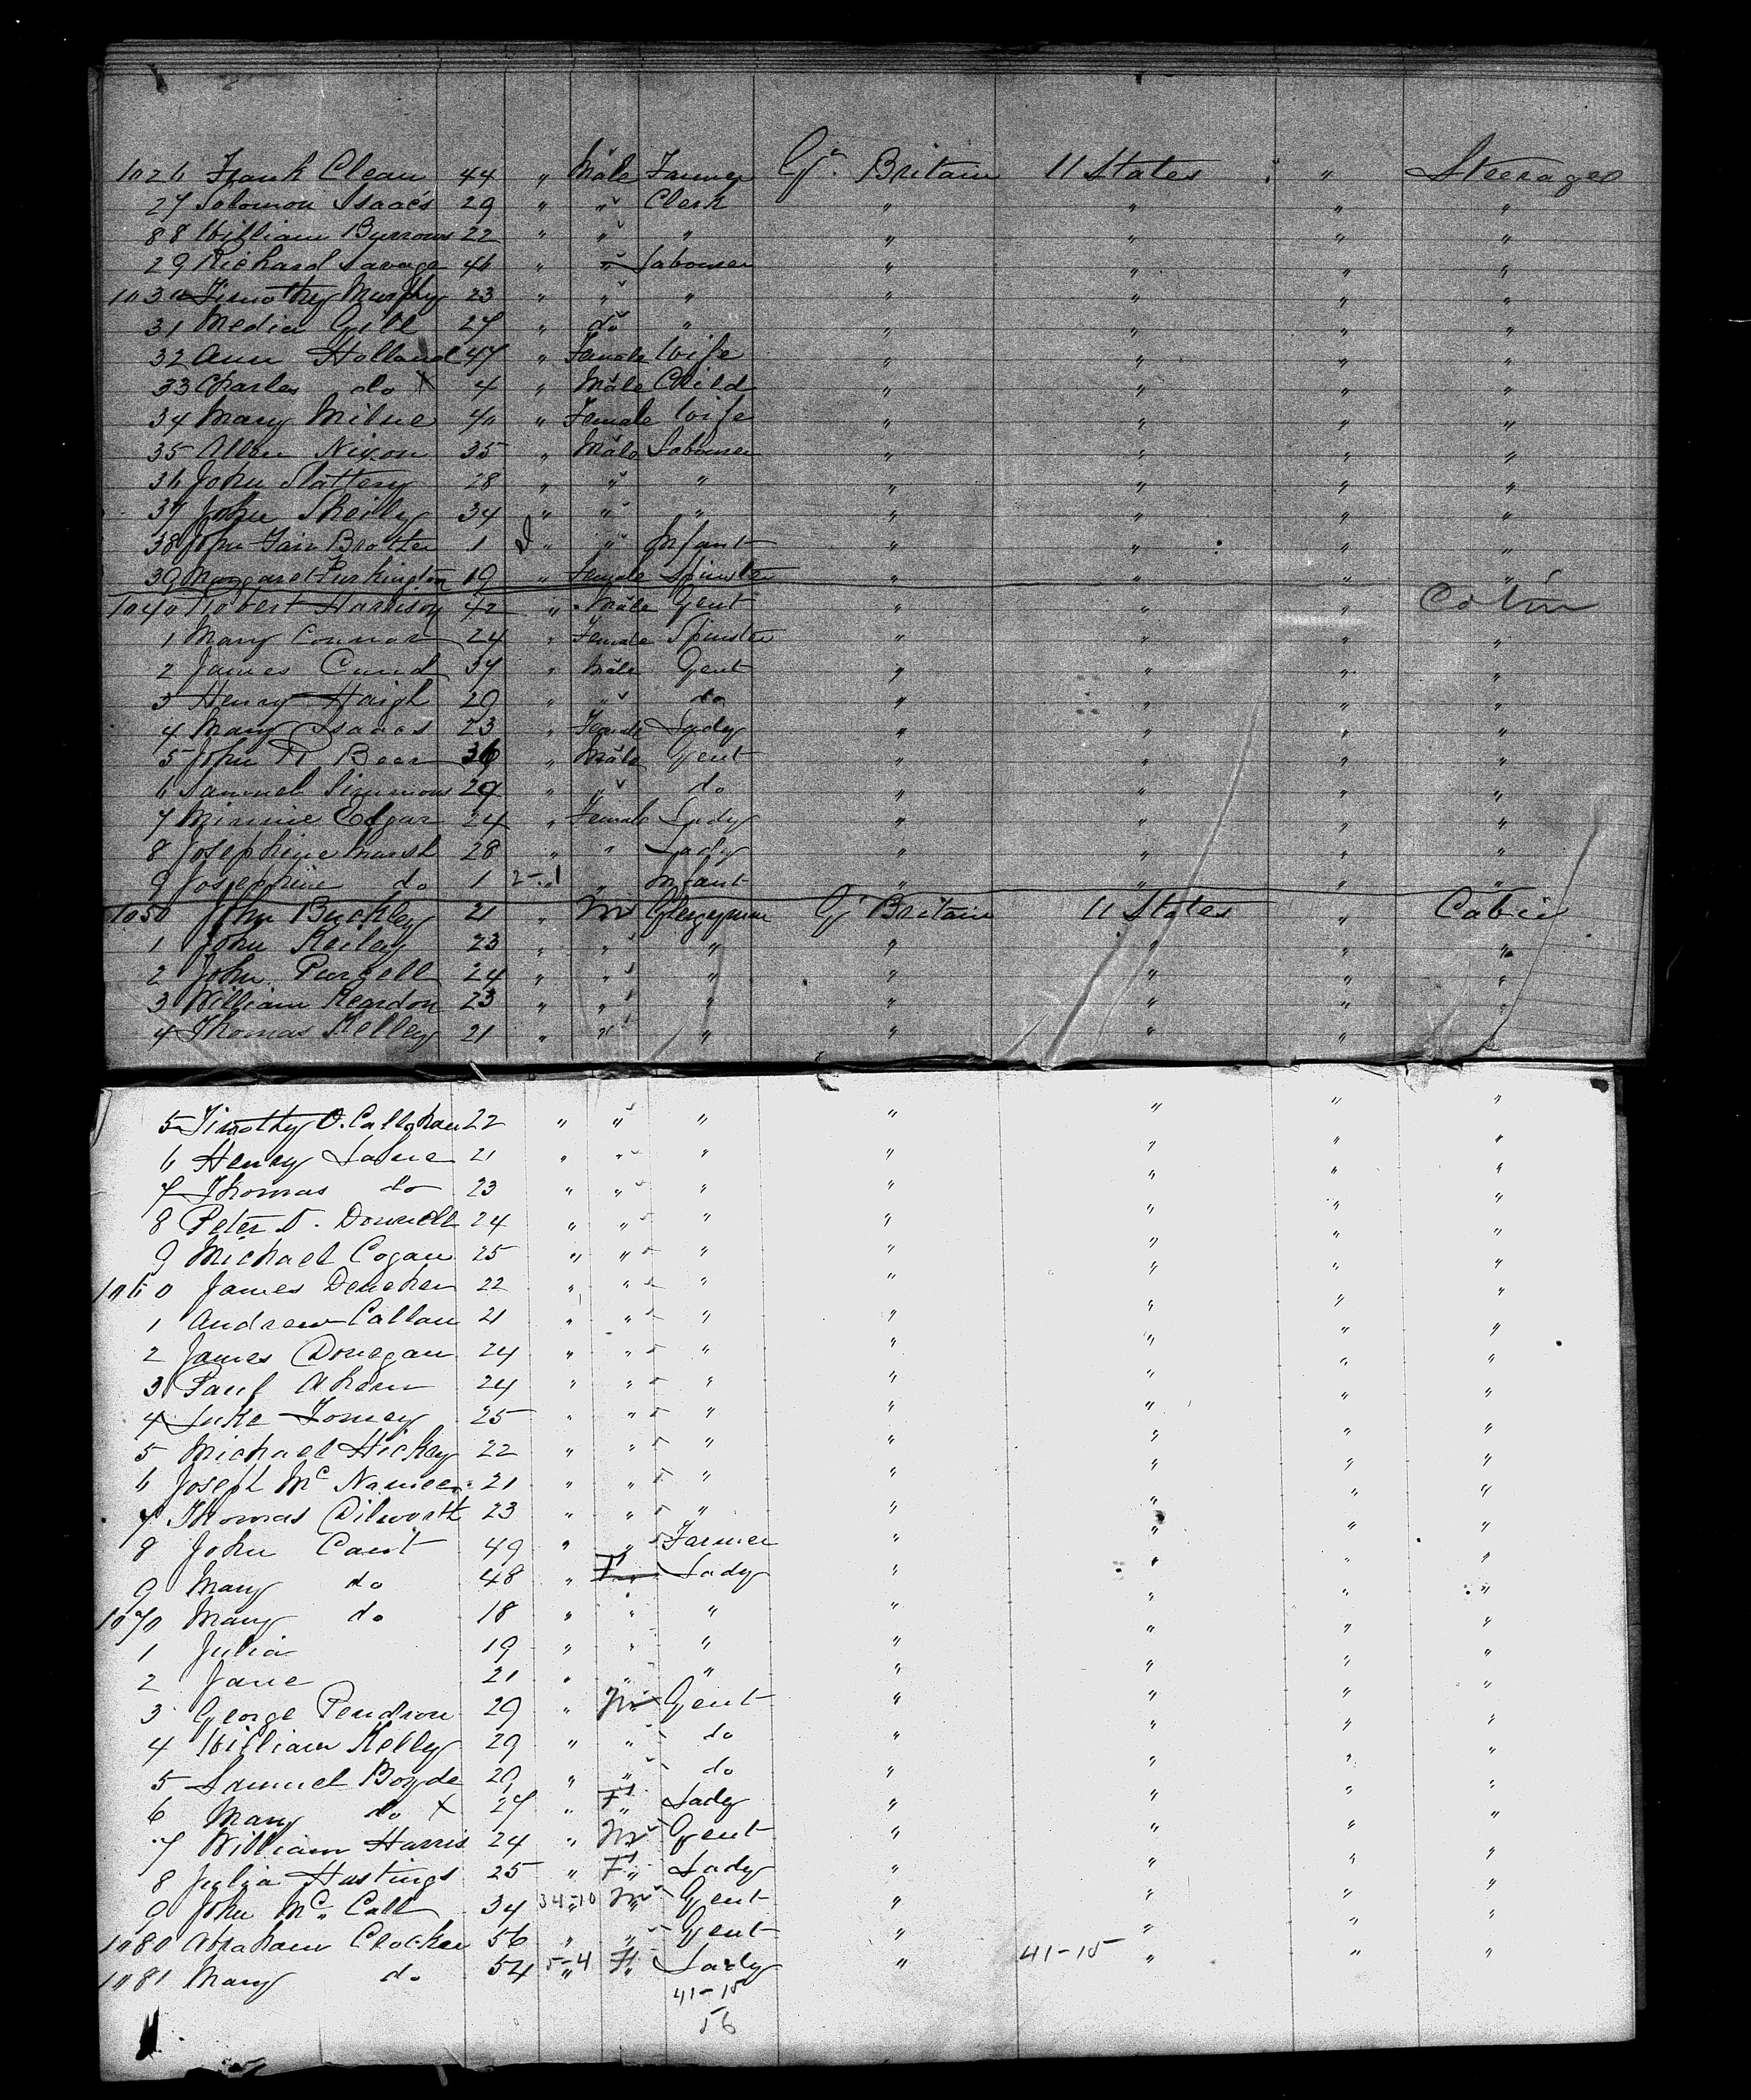 1026 Frank Clean 44 " Male Farmer Gt. Britain U States " " Steerage
27 Solomon Isaacs 29 " " Clerk " " " "
88 William Burrows 22 " " " " " " "
29 Richard Savage 46 " " Labourer " " " "
1030 Timothy Murphy 23 " " " " " " "
31 Gill 27 " do " " " " "
32 Ann Holland 47 " Female Wife " " " "
33 Charles do X 4 " Male Child " " " "
34 Mary Milne 40 " Female Wife " " " "
35 Allen Nixon 35 " Male Labourer " " " "
36 John Slattery 28 " " " " " " "
37 John Skelly 34 " " " " " " "
38 John Fair Brother 1 " " Infant " " " "
39 Margaret Purkington 19 " Female Spinster " " " "
1040 Robert Harrison 42 " Male Gent " " " Cabin
1 Mary Connor 24 " Female Spinster " " " "
2 James Cund 37 " Male Gent " " " "
3 Henry Haigh 29 " " do " " " "
4 Mary Isaacs 23 " Female Lady " " " "
5 John R Beer 36 " Male Gent " " " "
6 Samuel Simmons 29 " " do " " " "
7 Minnie Edgar 24 " Female Lady " " " "
8 Josephine Marsh 28 " " Lady " " " "
9 Josephine do 1 2-1 " Infant " " " "
1050 John Buckley 21 " M Clergyman Gt Britain U States " Cabin
1 John Keiley 23 " " " " " " "
2 John Purcell 24 " " " " " " "
3 William Reardon 23 " " " " " " "
4 Thomas Kelley 21 " " " " " " "
5 Timothy O.Callghan 22 " " " " " " "
6 Henry Lane 21 " " " " " " "
7 Thomas do 23 " " " " " " "
8 Peter D. Donnell 24 " " " " " " "
9 Michael Cogan 25 " " " " " " "
1060 James Denehen 22 " " " " " " "
1 Andrew Callan 21 " " " " " " "
2 James Donegan 24 " " " " " " "
3 Paul Ahern 24 " " " " " " "
4 Luke Tomey 25 " " " " " " "
5 Michael Hickey 22 " " " " " " "
6 Joseph Mc Namee 21 " " " " " " "
7 Thomas Dilworth 23 " " " " " " "
8 John Cant 49 " " Farmer " " " "
9 Mary do 48 " F Lady " " " "
1070 Mary do 18 " " " " " " "
1 Julia 19 " " " " " " "
2 Jane 21 " " " " " " "
3 George Pendron 29 " M Gent " " " "
4 William Kelly 29 " " do " " " "
5 Samuel Boyde 29 " " do " " " "
6 Mary do X 27 " F Lady " " " "
7 William Harris 24 " M Gent " " " "
8 Julia Hastings 25 " F Lady " " " "
9 John Mc Call 34 34-10 M Gent " " " "
1080 Abraham Crocker 56 " " Gent " " " "
1081 Mary do 54 5-4 F Lady " 41-15 " " "
41-15
56